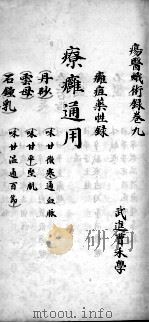 瘍醫蛾術錄卷九
武進曹禾學
癰疽藥性錄
療癰通用
丹砂 味甘微寒通血脈
雲母 味甘平堅肌
石鐘乳 味甘温通百節
www.modao.com